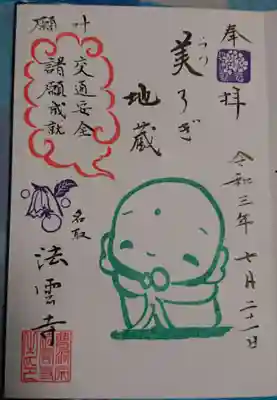 奉拝
令和三年七月二十一日
美ろぎ
地蔵
叶願
交通安全
諸願成就
名取
法雲寺